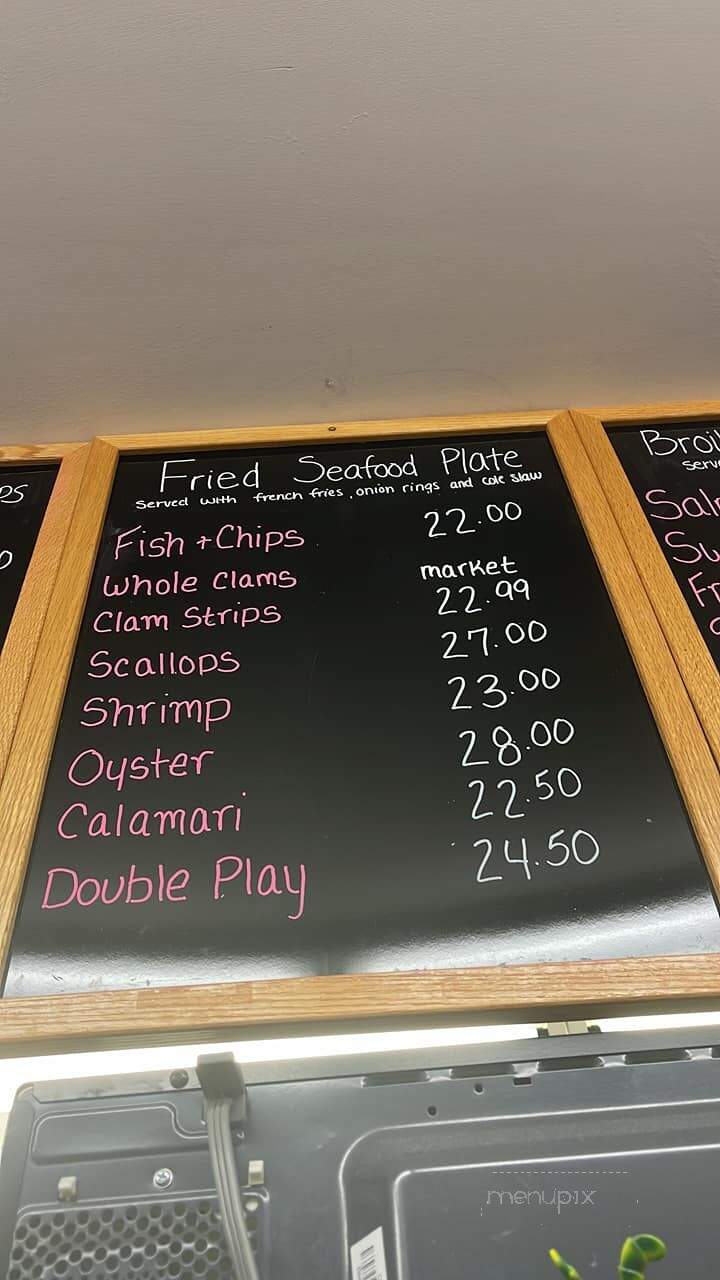 Fried Seafood Plate
Served with french fries, onion rings and cole slaw
Fish + Chips 22.00
Whole Clams market
Clam Strips 22.99
Scallops 27.00
Shrimp 23.00
Oyster 28.00
Calamari 22.50
Double Play 24.50
Broi
Serve
Sal
Su
Fr
menupix